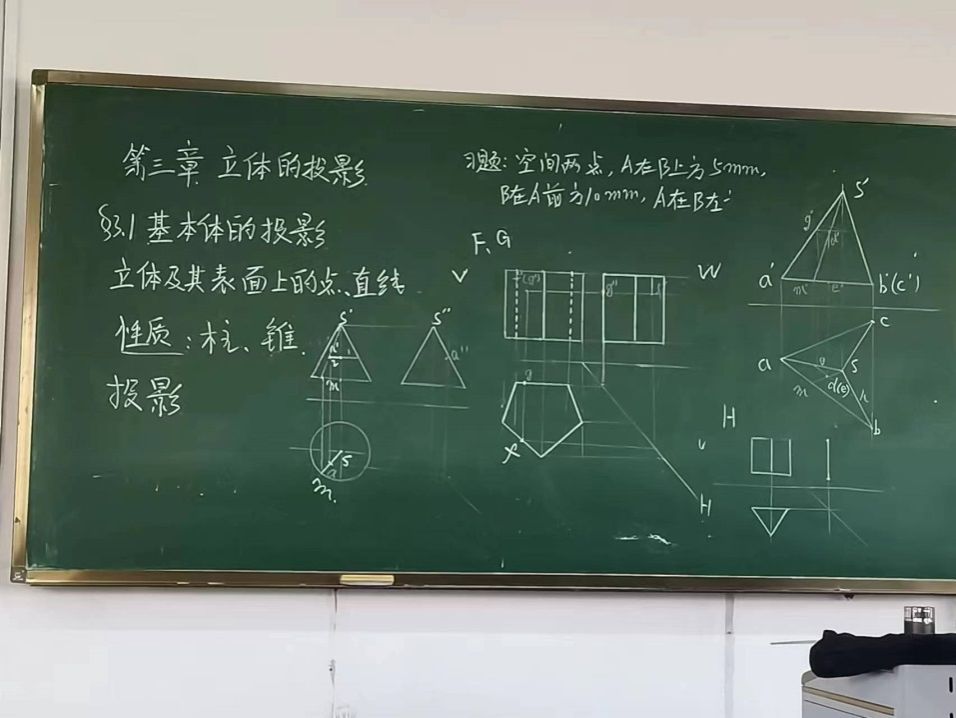 第三章 立体的投影
§3.1 基本体的投影
立体及其表面上的点、直线
性质：柱、锥.
投影
习题：空间两点，A在B上方5mm，
B在A前方10mm，A在B左
F、G
V
W
H
S'
S''
a''
m
S
a
m
g''
g
H
S'
g'
d'
a'
m'
e'
b'(c')
c
a
S
d(e)
m
b
H